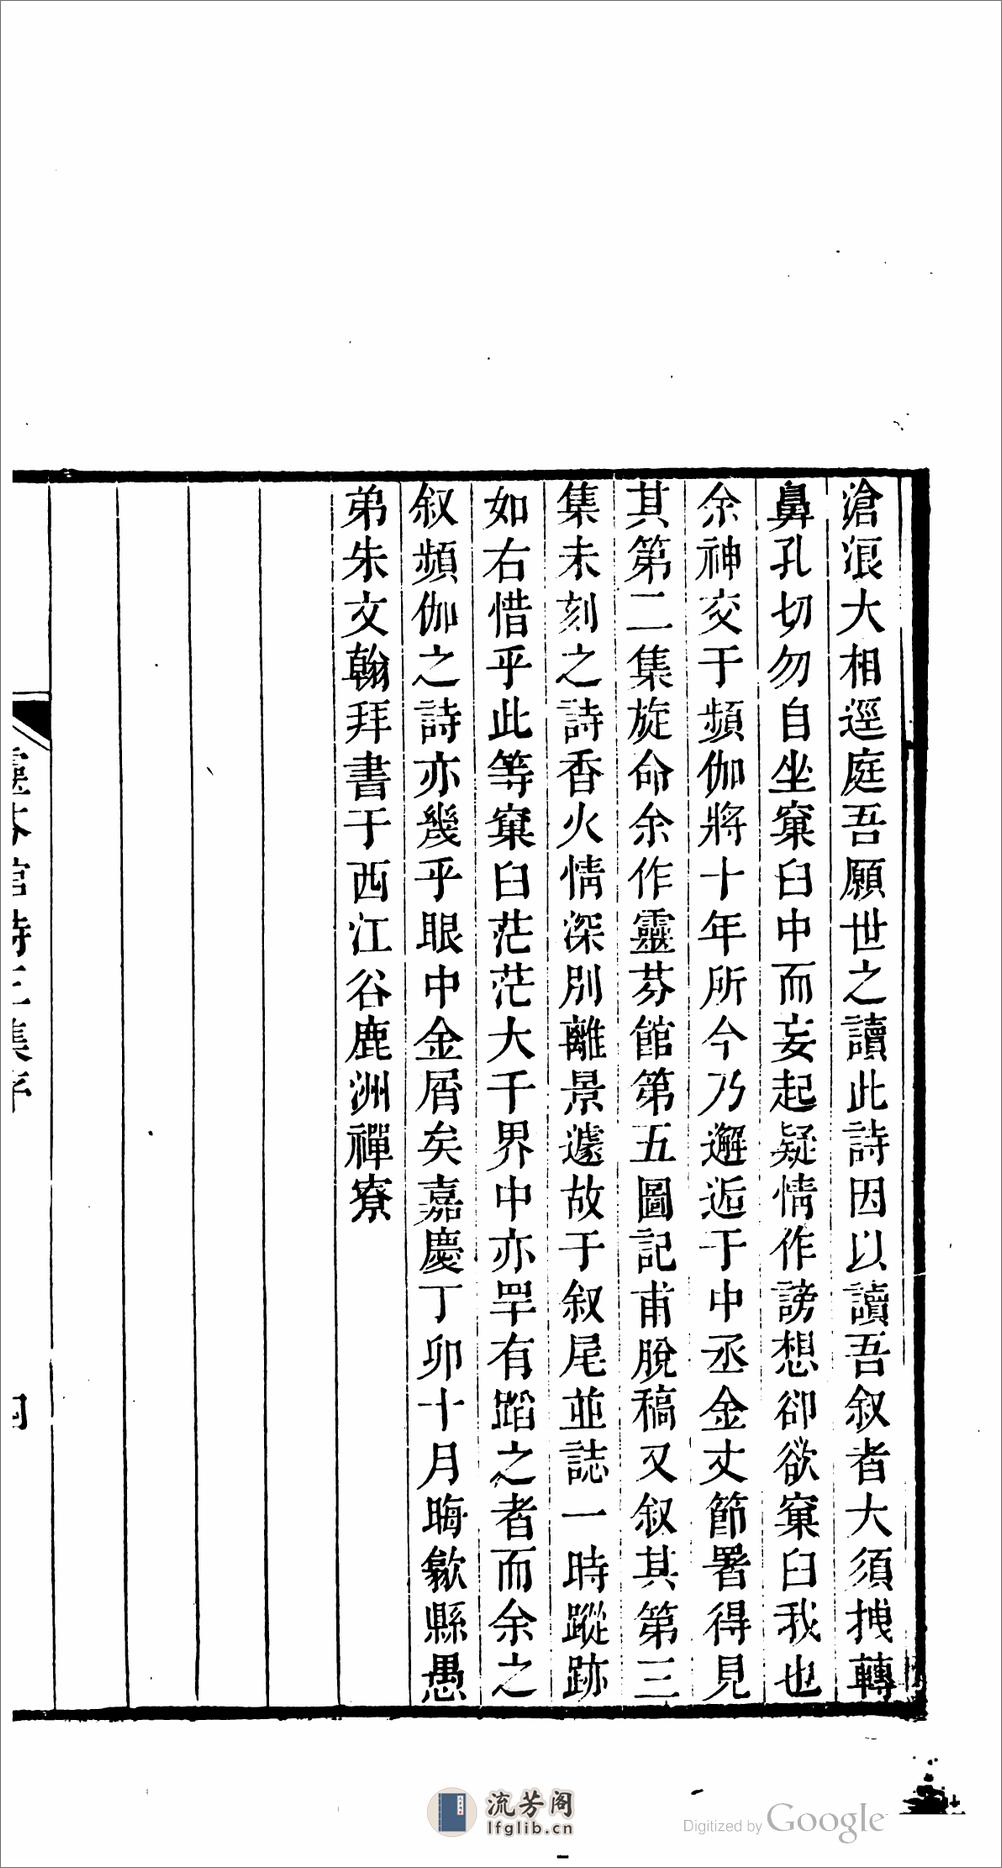 滄浪大相逕庭吾願世之讀此詩因以讀吾叙者大須拽轉
鼻孔切勿自坐窠臼中而妄起疑情作謗想卻欲窠臼我也
余神交于頻伽將十年所今乃邂逅于中丞金丈節署得見
其第二集旋命余作靈芬館第五圖記甫脫稿又叙其第三
集未刻之詩香火情深別離景遽故于叙尾並誌一時蹤跡
如右惜乎此等窠臼茫茫大千界中亦罕有蹈之者而余之
叙頻伽之詩亦幾乎眼中金屑矣嘉慶丁卯十月晦歙縣愚
弟朱文翰拜書于西江谷鹿洲禪寮
靈芬館詩三集序
四
流芳阁
lfglib.cn
Digitized by Google